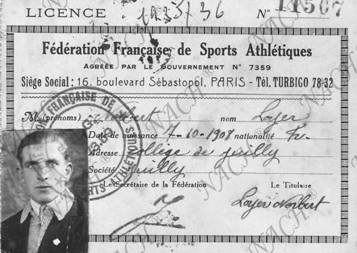 LICENCE : 1935/36 N° 11567
Fédération Française de Sports Athlétiques
AGRÉÉE PAR LE GOUVERNEMENT N° 7359
Siège Social: 16, boulevard Sébastopol, PARIS - Tél. TURBIGO 78-32
M. (prénoms) Norbert nom Layer
Date de naissance 7-10-1908 nationalité Fr.
Adresse Collège de Juilly
Société Juilly
Le Secrétaire de la Fédération Le Titulaire
Layer Norbert